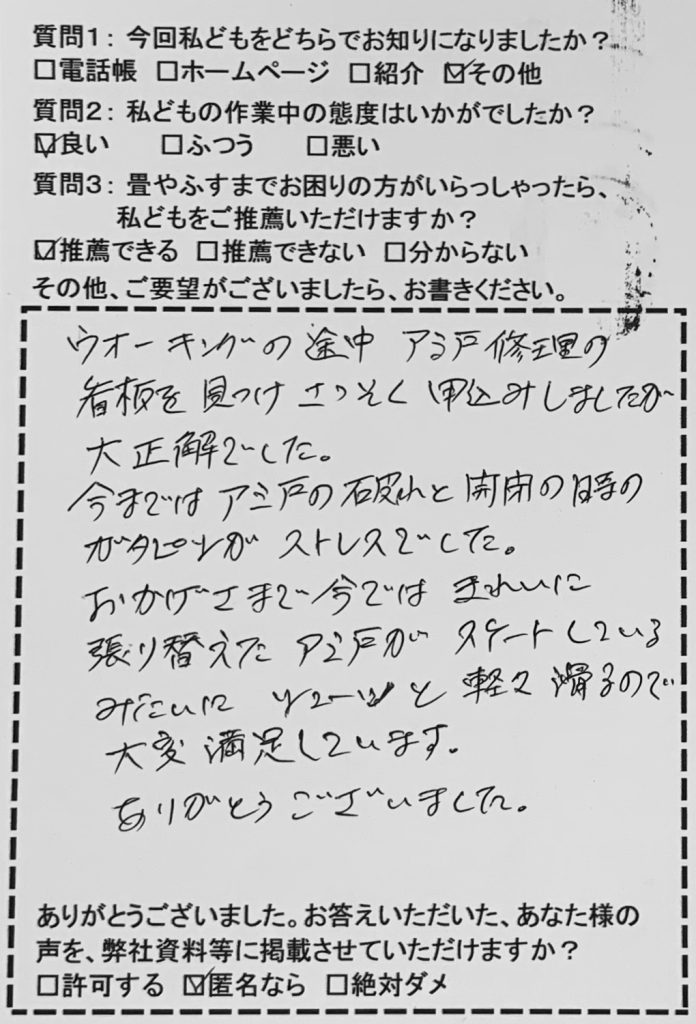 質問1：今回私どもをどちらでお知りになりましたか？
□電話帳 □ホームページ □紹介 ☑その他
質問2：私どもの作業中の態度はいかがでしたか？
☑良い □ふつう □悪い
質問3：畳やふすまでお困りの方がいらっしゃったら、
私どもをご推薦いただけますか？
☑推薦できる □推薦できない □分からない
その他、ご要望がございましたら、お書きください。
ウオーキングの途中 アミ戸修理の
看板を見つけ さっそく申込みしましたが
大正解でした。
今まではアミ戸の破れと開閉の時の
ガタピシがストレスでした。
おかげさまで今では きれいに
張り替えたアミ戸が スケートしている
みたいに ツーーッと軽く滑るので
大変満足しています。
ありがとうございました。
ありがとうございました。お答えいただいた、あなた様の
声を、弊社資料等に掲載させていただけますか？
□許可する ☑匿名なら □絶対ダメ